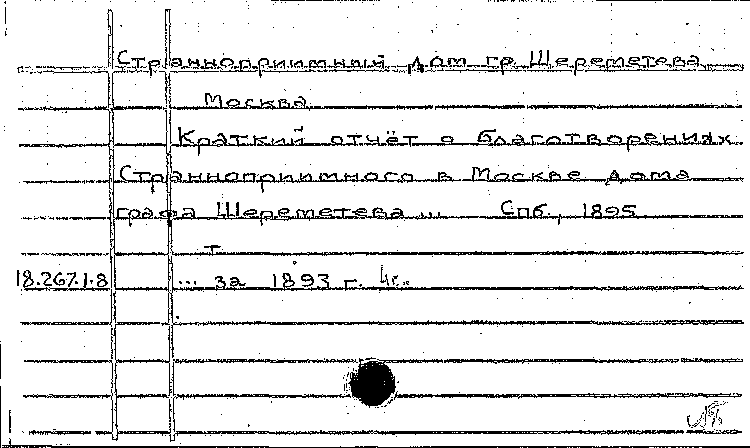 Странноприимный дом гр. Шереметева.
Москва.
Краткий отчёт о благотворениях
Странноприимного в Москве дома
графа Шереметева ... Спб., 1895.
т
18.267.1.8 ... за 1893 г. 4с.